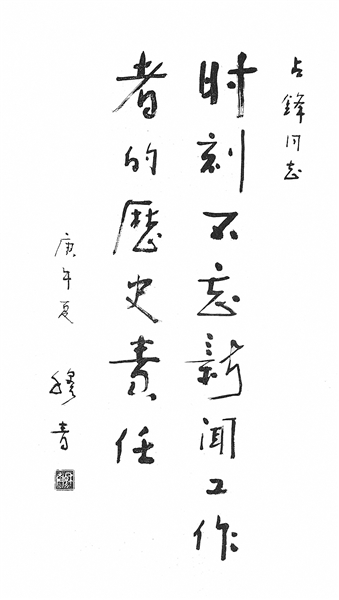 占鋒同志
时刻不忘新闻工作
者的歷史责任
庚午夏
穆青